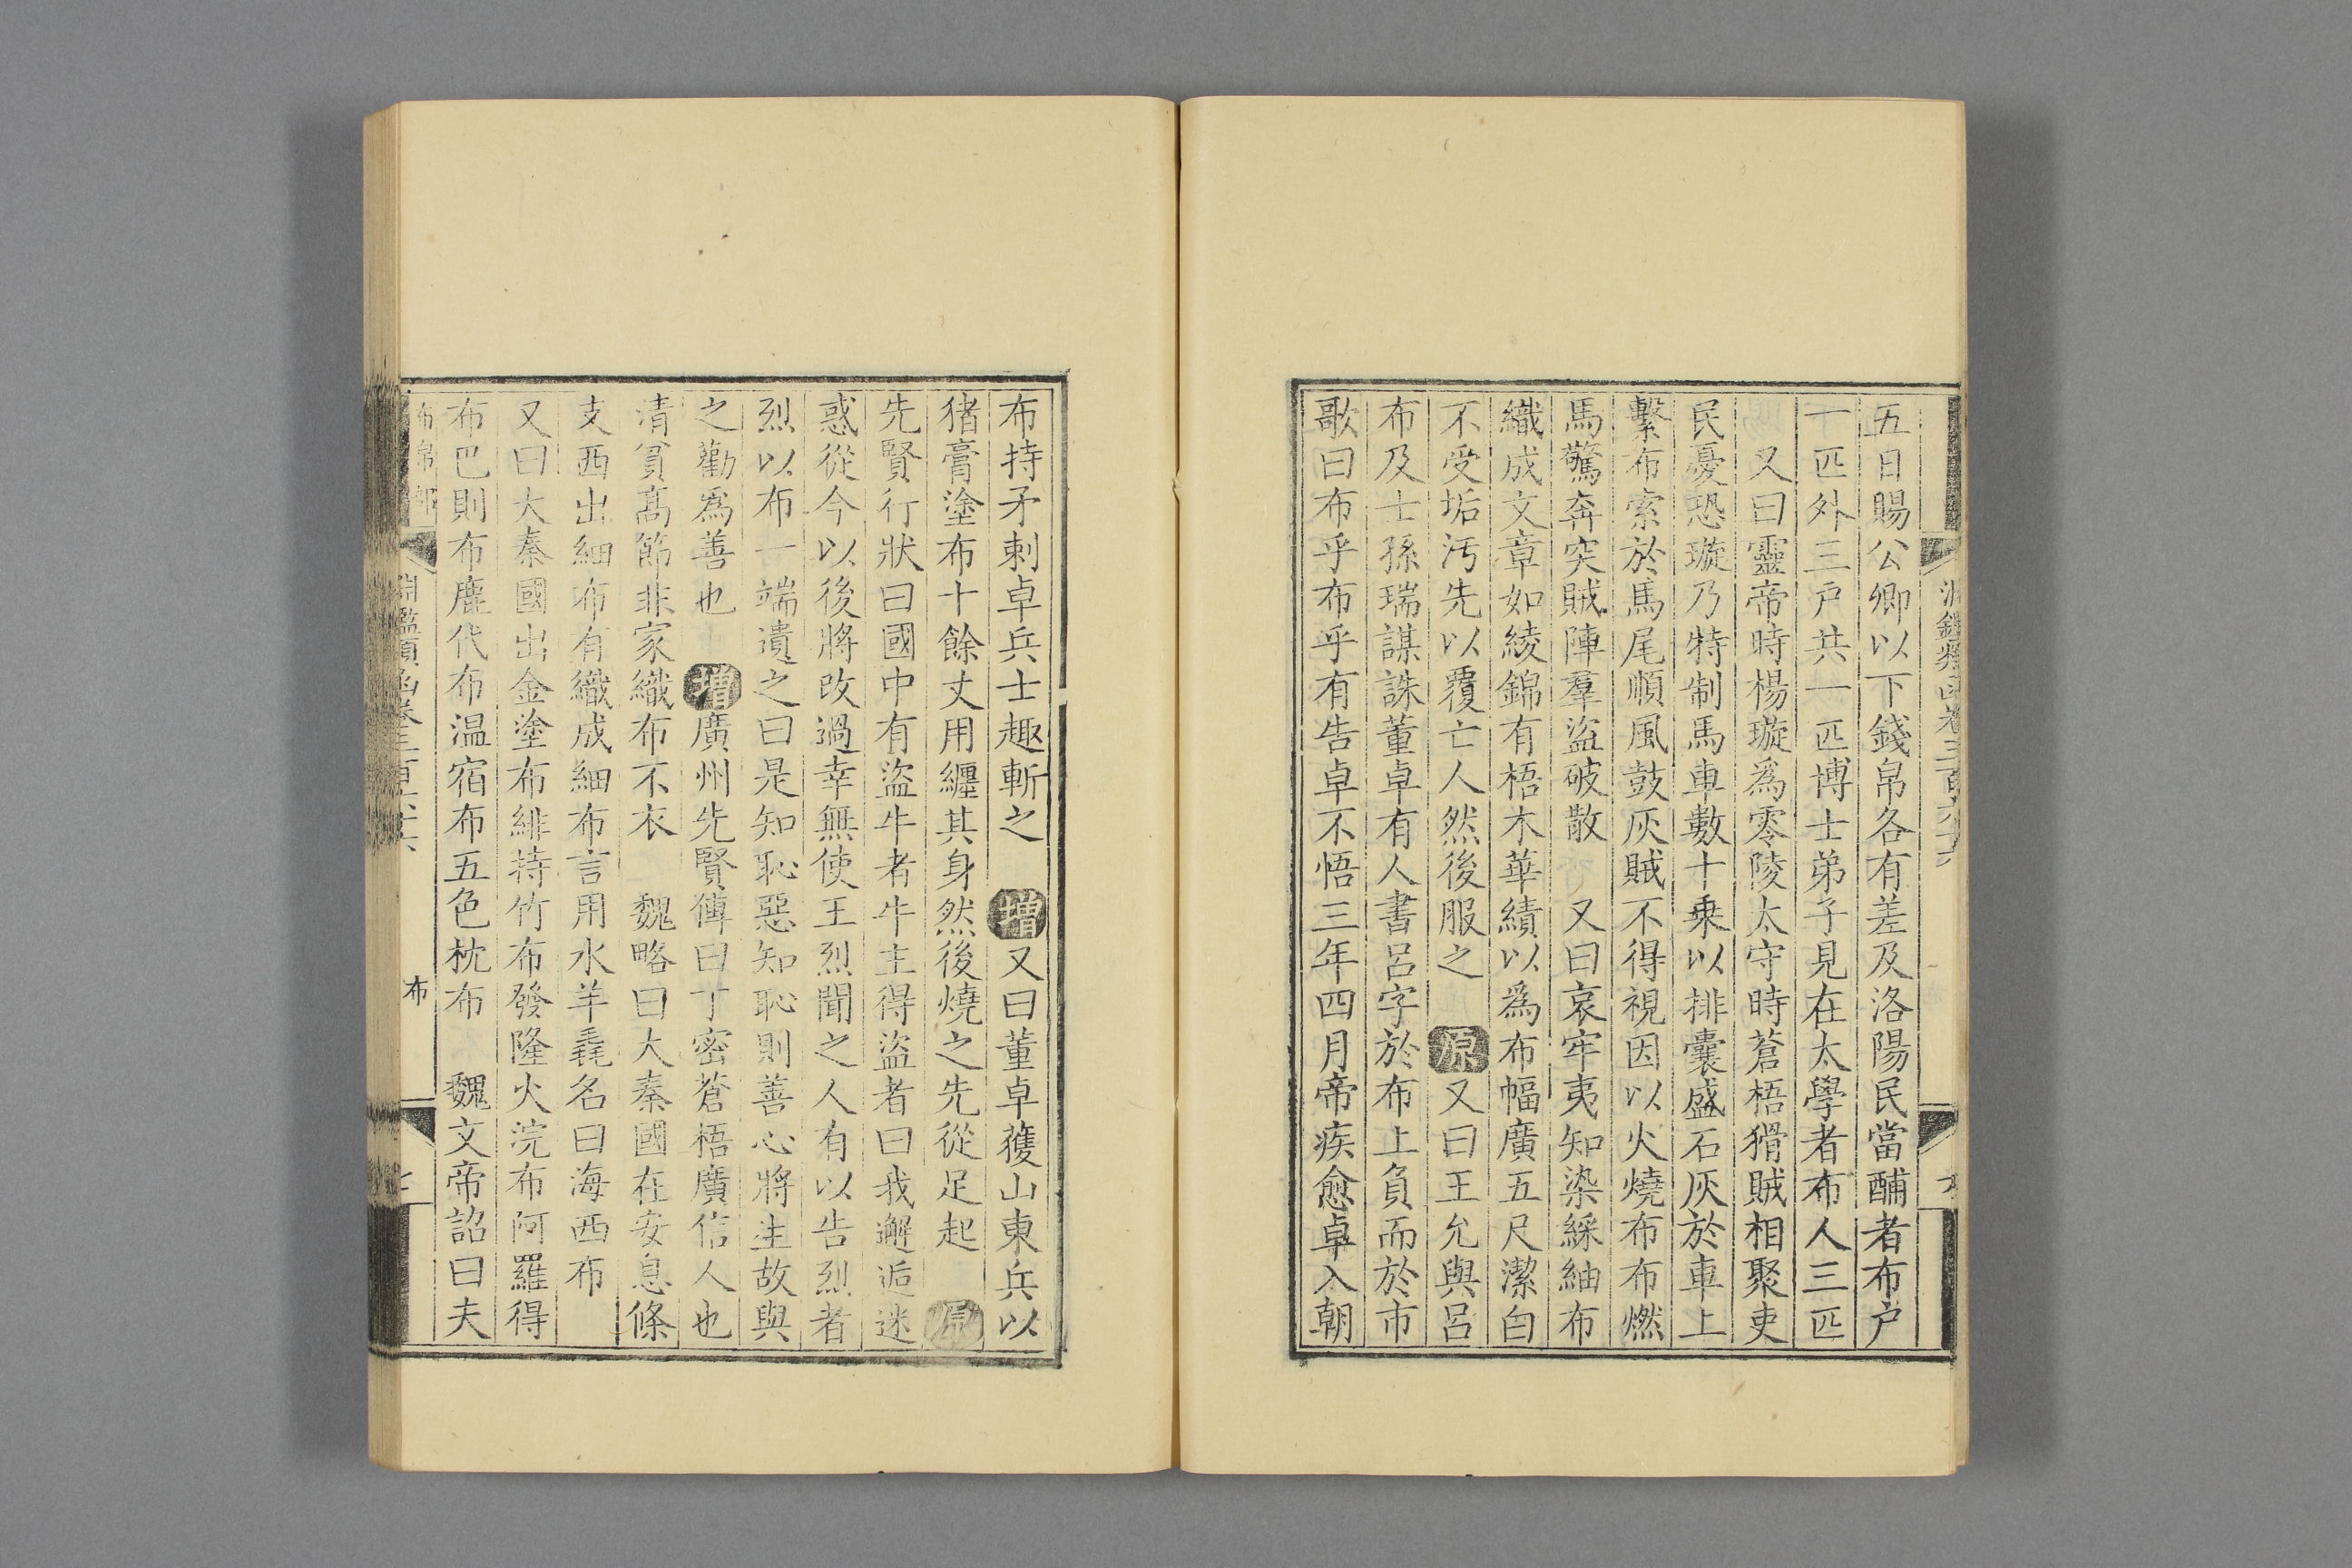 淵鑑類函卷三百六十六
五日賜公卿以下錢帛各有差及洛陽民當酺者布户
一匹外三户共一匹博士弟子見在太學者布人三匹
又曰靈帝時楊璇爲零陵太守時蒼梧猾賊相聚吏
民憂恐璇乃特制馬車數十乗以排囊盛石灰於車上
繫布索於馬尾順風鼓灰賊不得視因以火燒布布燃
馬驚奔突賊陣羣盜破散　又曰哀牢夷知染綵紬布
織成文章如綾錦有梧木華績以爲布幅廣五尺潔白
不受垢汚先以覆亡人然後服之　原又曰王允與呂
布及士孫瑞謀誅董卓有人書呂字於布上負而於市
歌曰布乎布乎有告卓不悟三年四月帝疾愈卓入朝
布持矛刺卓兵士趣斬之　増又曰董卓獲山東兵以
猪膏塗布十餘丈用纒其身然後燒之先從足起　原
先賢行狀曰國中有盜牛者牛主得盜者曰我邂逅迷
惑從今以後將改過幸無使王烈聞之人有以告烈者
烈以布一端遺之曰是知恥惡知恥則善心將生故與
之勸爲善也　増廣州先賢傳曰丁密蒼梧廣信人也
清貧髙節非家織布不衣　魏略曰大秦國在安息條
支西出細布有織成細布言用水羊毳名曰海西布
又曰大秦國出金塗布緋持竹布發隆火浣布阿羅得
布巴則布鹿代布温宿布五色枕布　魏文帝詔曰夫
布帛部　淵鑑類函卷三百六十六　布　七